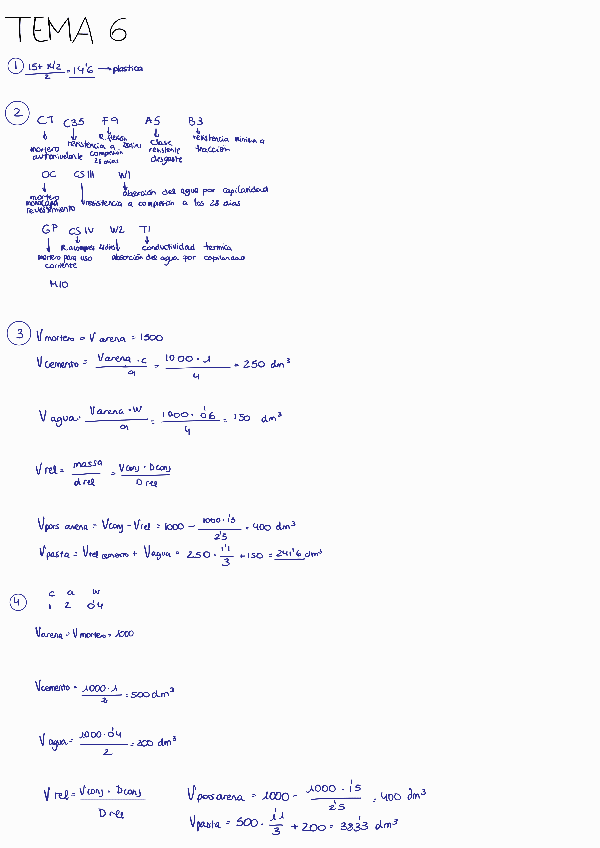 TEMA 6
① 15 + x/2 / 2 = 14'6 → plastica
② CT C35 F9 A5 B3
mortero autonivelante
resistencia a compresion 28 dias
R. flexion
clase resistente desgaste
resistencia minima a traccion
OC CS III W1
mortero monocapa revestimiento
resistencia a compresion a los 28 dias
absorción del agua por capilaridad
GP CS IV W2 T1
mortero para uso corriente
absorción del agua por capilaridad
conductividad termica
M10
③ Vmortero = Varena = 1500
Vcemento = Varena · c / a = 1000 · 1 / 4 = 250 dm³
Vagua = Varena · w / a = 1000 · 0'6 / 4 = 150 dm³
Vrel = massa / d rel = Vconj · Dconj / D rel
Vpors arena = Vconj - Vrel = 1000 - 1000 · 1'5 / 2'5 = 400 dm³
Vpasta = Vrel cemento + Vagua = 250 · 1'1 / 3 + 150 = 241'6 dm³
④ c a w
1 2 0'4
Varena = Vmortero = 1000
Vcemento = 1000 · 1 / 2 = 500 dm³
Vagua = 1000 · 0'4 / 2 = 200 dm³
Vrel = Vconj · Dconj / D rel
Vpors arena = 1000 - 1000 · 1'5 / 2'5 = 400 dm³
Vpasta = 500 · 1'1 / 3 + 200 = 383'3 dm³